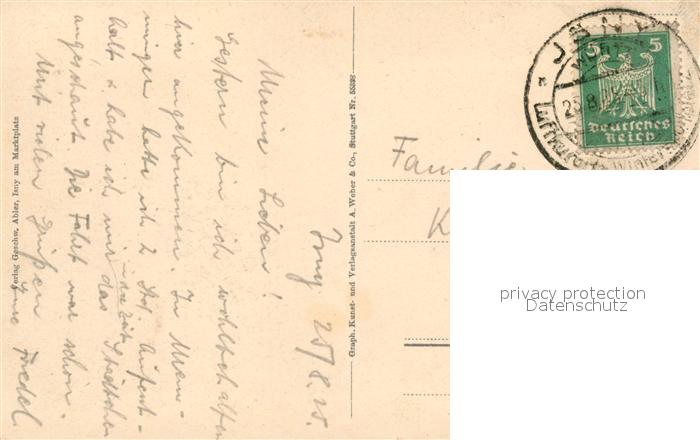 Isny 25/8.25.
Meine Lieben!
Gestern bin ich wohlbehalten
hier angekommen. In Mem-
mingen hatte ich 2 Std. Aufent-
halt & habe ich mir das Städtchen
angeschaut. Die Fahrt war schön.
Mit vielen Grüßen
Eure Friedel
Verlag Geschw. Abler, Isny am Marktplatz
Graph. Kunst- und Verlagsanstalt A. Weber & Co., Stuttgart Nr. 55898
ISNY
25.8.
Luftkurort
5 5
Deutsches
Reich
Familie
K
privacy protection
Datenschutz